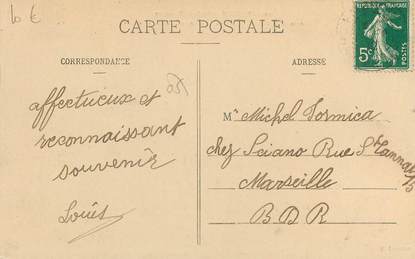 10 €
CARTE POSTALE
CORRESPONDANCE
ADRESSE
REPUBLIQUE FRANÇAISE
5c
POSTES
affectueux et
reconnaissant
souvenir
Louis
Mr Michel Formica
chez Sciano Rue St
Marseille
B D R